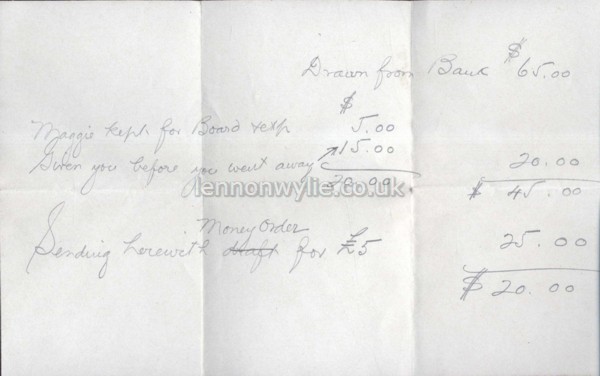 Drawn from Bank $65.00
$
Maggie kept for Board & exp 5.00
Given you before you went away 15.00
20.00 20.00
$ 45.00
Money Order
Sending herewith draft for £5 25.00
$ 20.00
lennonwylie.co.uk